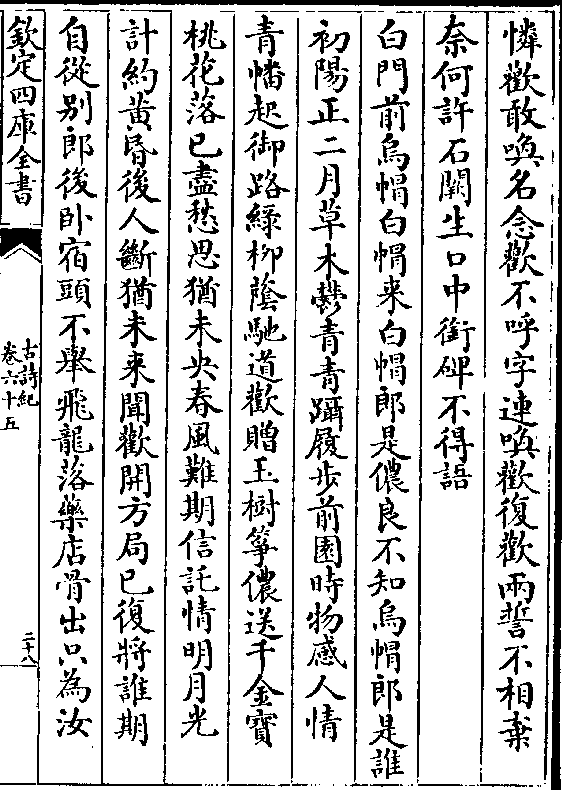 憐歡敢喚名念歡不呼字連喚歡復歡兩誓不相棄
奈何許石闕生口中銜碑不得語
白門前烏帽白帽来白帽郎是儂良不知烏帽郎是誰
初陽正二月草木鬱青青躡履步前園時物感人情
青幡起御路綠栁蔭馳道歡贈玉樹箏儂送千金寳
桃花落已盡愁思猶未央春風難期信託情明月光
計約黄昏後人斷猶未来聞歡開方局已復將誰期
自從别郎後卧宿頭不舉飛龍落藥店骨出只為汝
欽定四庫全書
古詩紀
卷六十五
二十八